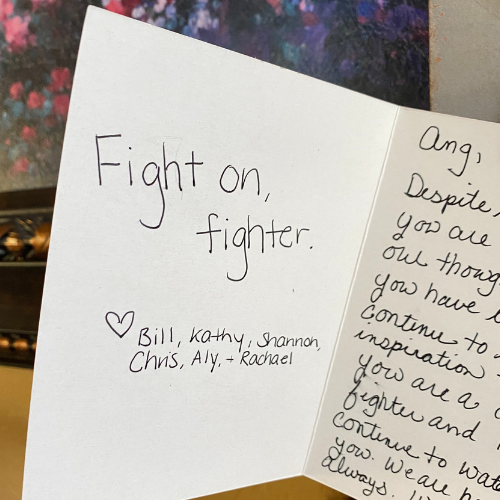 Fight on,
fighter.
♡ Bill, Kathy, Shannon,
Chris, Aly, + Rachael
Ang,
Despite
you are
our
you have
Continue to
inspiration
you are a
fighter and
Continue to
you. We are
always.